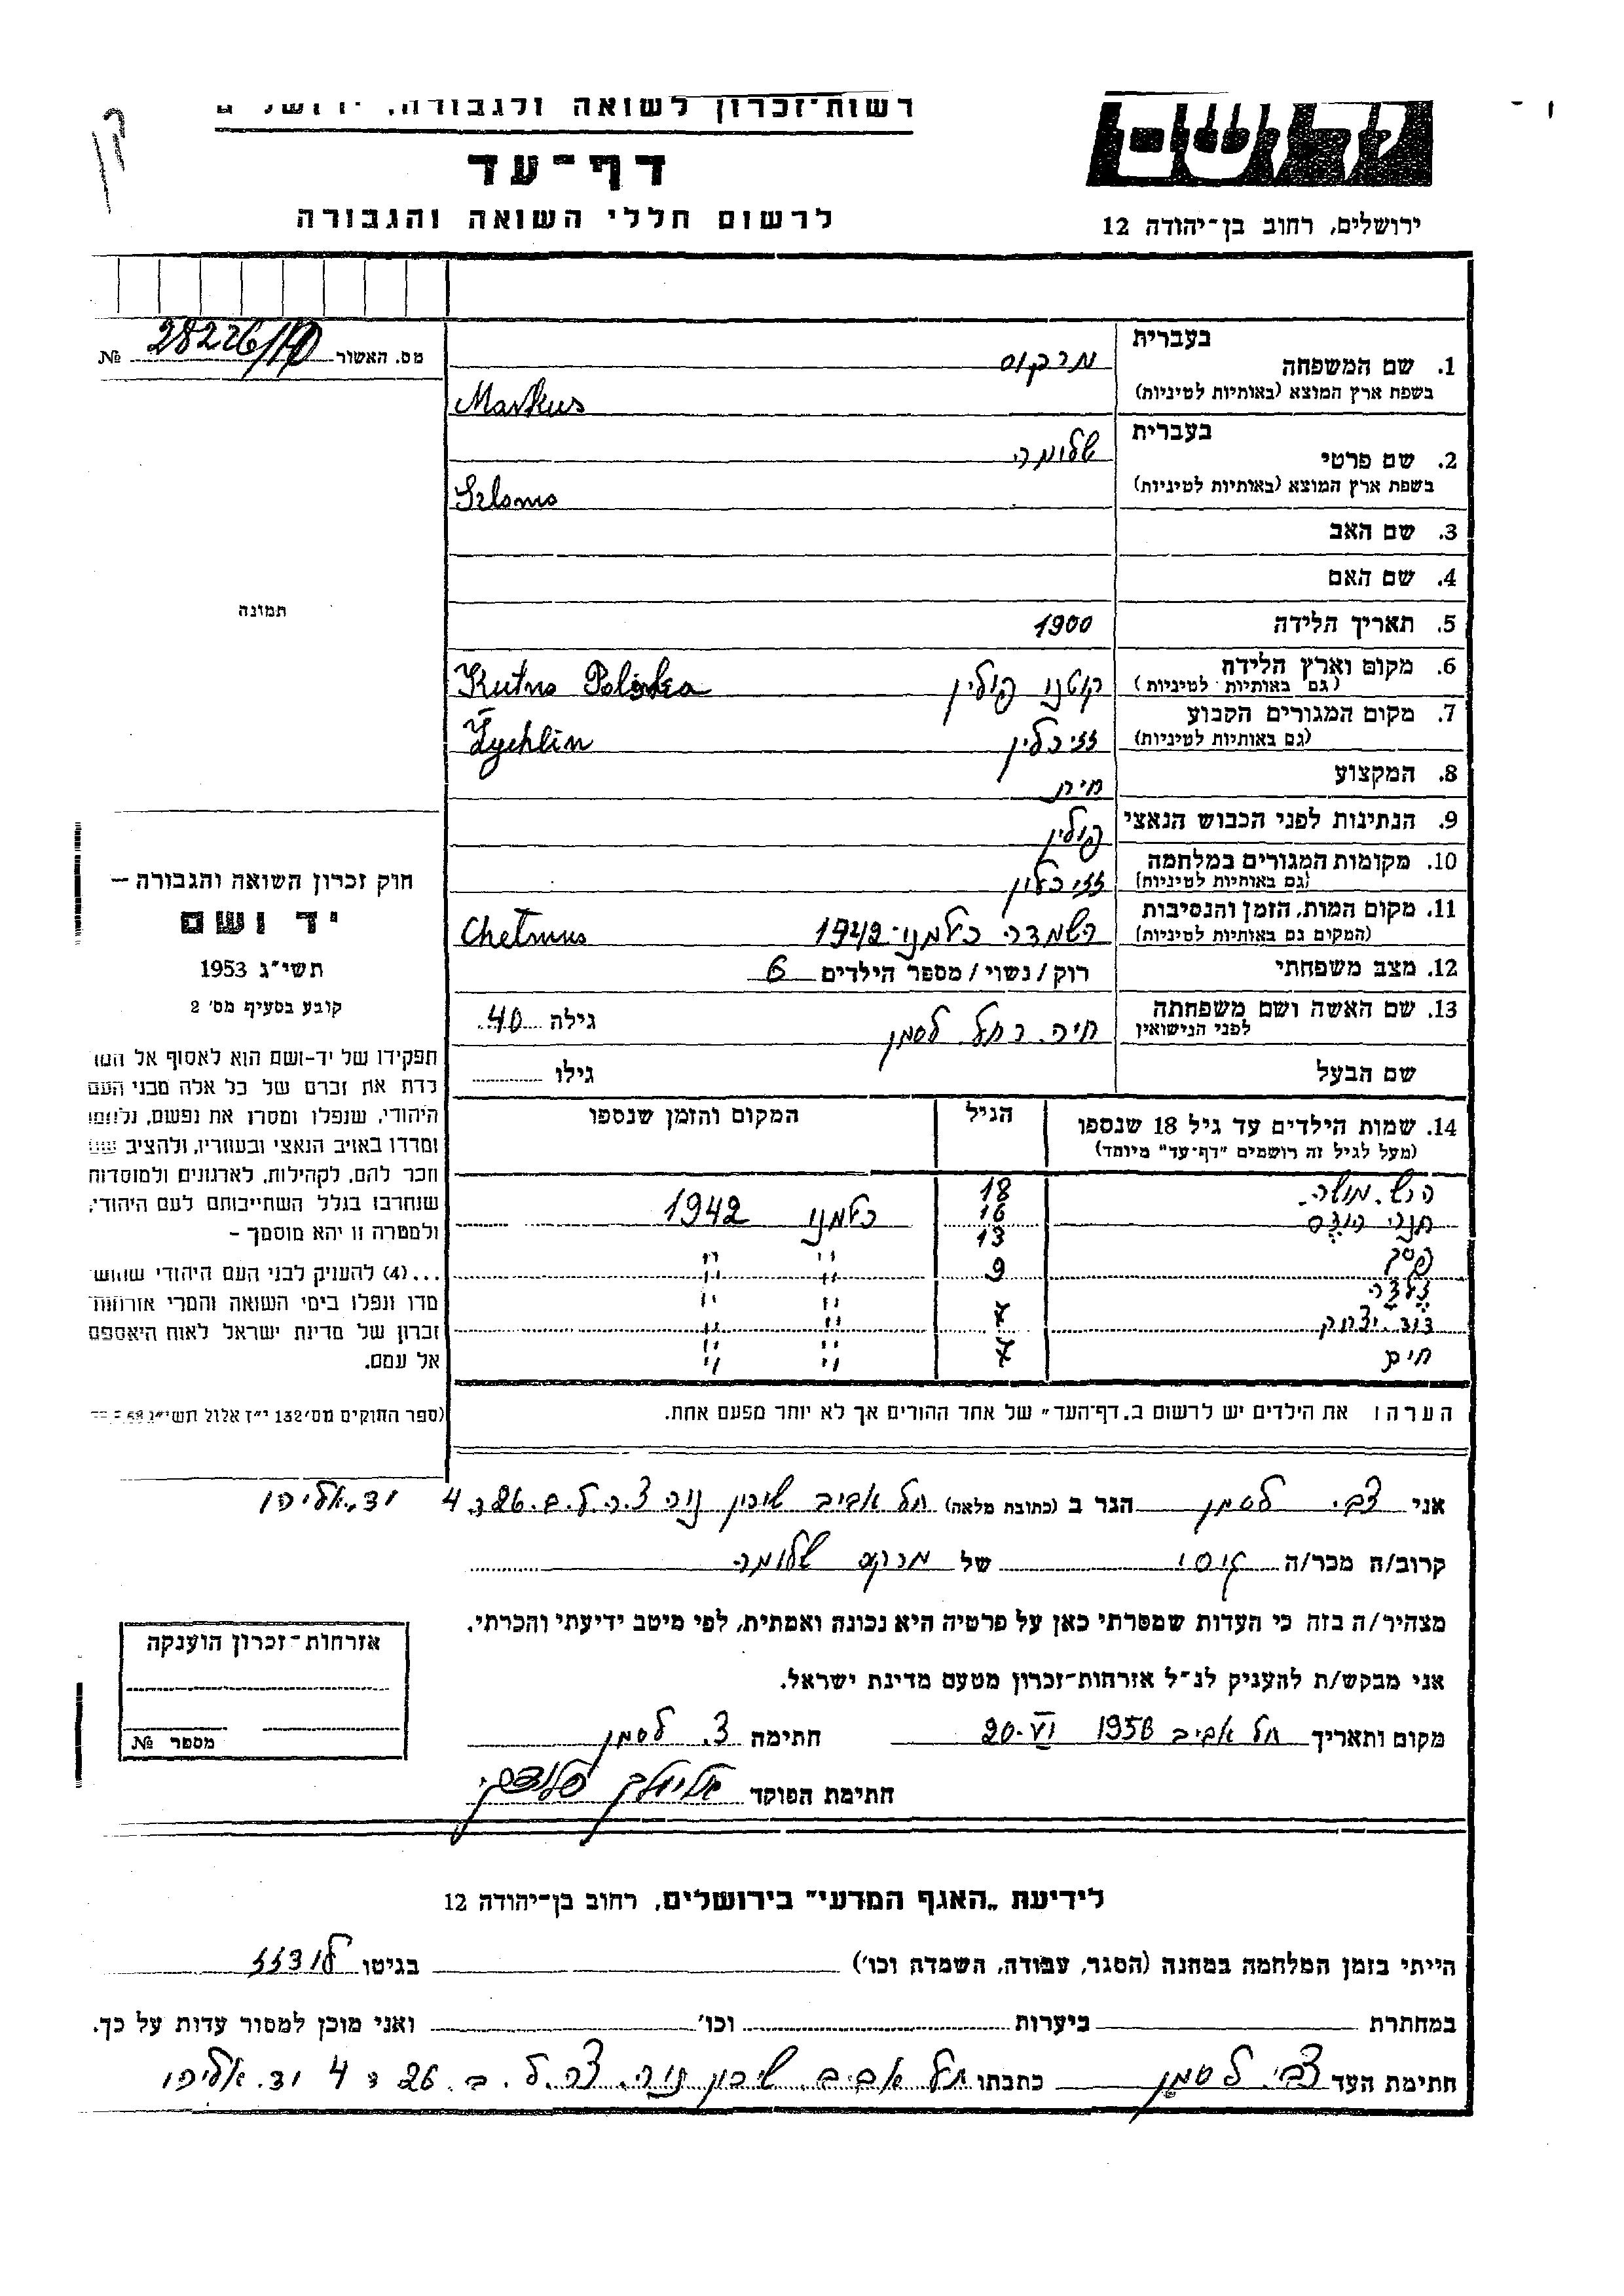 רשות־זכרון לשואה ולגבורה, ירושלים
דף־עד
לרשום חללי השואה והגבורה
יד ושם
ירושלים, רחוב בן־יהודה 12
מס. האשור № 28226/
1. שם המשפחה בעברית מרקוס
בשפת ארץ המוצא (באותיות לטיניות) Markus
2. שם פרטי בעברית שלומה
בשפת ארץ המוצא (באותיות לטיניות) Szlomo
3. שם האב
4. שם האם
5. תאריך הלידה 1900
6. מקום וארץ הלידה (גם באותיות לטיניות) קוטנו פולין Kutno Polska
7. מקום המגורים הקבוע (גם באותיות לטיניות) זיכלין Żychlin
8. המקצוע
9. הנתינות לפני הכבוש הנאצי פולין
10. מקומות המגורים במלחמה (גם באותיות לטיניות)
11. מקום המות, הזמן והנסיבות (המקום גם באותיות לטיניות) השמדה כלמנו 1942 Chelmno
12. מצב משפחתי רוק/נשוי/מספר הילדים 6
13. שם האשה ושם משפחתה לפני הנישואין חיה רחל לסמן גילה 40
שם הבעל גילו
14. שמות הילדים עד גיל 18 שנספו הגיל המקום והזמן שנספו
(מעל לגיל זה רושמים "דף־עד" מיוחד)
הרש מושה 18
16 כלמנו 1942
פסח 13 " "
9 " "
דוד יצחק 7 " "
חיים 7 " "
הערה: את הילדים יש לרשום ב„דף־העד" של אחד ההורים אך לא יותר מפעם אחת.
תמונה
חוק זכרון השואה והגבורה –
יד ושם
תשי"ג 1953
קובע בסעיף מס' 2
תפקידו של יד-ושם הוא לאסוף אל המו
לדת את זכרם של כל אלה מבני העם
היהודי, שנפלו ומסרו את נפשם, נלחמו
ומרדו באויב הנאצי ובעוזריו, ולהציב שם
וזכר להם, לקהילות, לארגונים ולמוסדות
שנחרבו בגלל השתייכותם לעם היהודי,
ולמטרה זו יהא מוסמך –
...(4) להעניק לבני העם היהודי שהוש
מדו ונפלו בימי השואה והמרי אזרחות
זכרון של מדינת ישראל לאות היאספם
אל עמם.
(ספר החוקים מס' 132 י"ז אלול תשי"ג
אני צבי לסמן הגר ב (כתובת מלאה) תל אביב שיכון נוה צ.ה.ל. ב. 26 ד. 4 יד אליהו
קרוב/ה מכר/ה גיסי של מרקס שלומה
מצהיר/ה בזה כי העדות שמסרתי כאן על פרטיה היא נכונה ואמתית, לפי מיטב ידיעתי והכרתי.
אני מבקש/ת להעניק לנ"ל אזרחות־זכרון מטעם מדינת ישראל.
מקום ותאריך תל אביב 1956 VI 20 חתימה צ. לסמן
חתימת הפוקד
אזרחות־זכרון הוענקה
מספר №
לידיעת „האגף המדעי" בירושלים, רחוב בן־יהודה 12
הייתי בזמן המלחמה במחנה (הסגר, עבודה, השמדה וכו') בגיטו לודזז
במחתרת ביערות וכו' ואני מוכן למסור עדות על כך.
חתימת העד צבי לסמן כתבתו תל אביב שיכון נוה צה.ל. ב. 26 ד 4 יד. אליהו